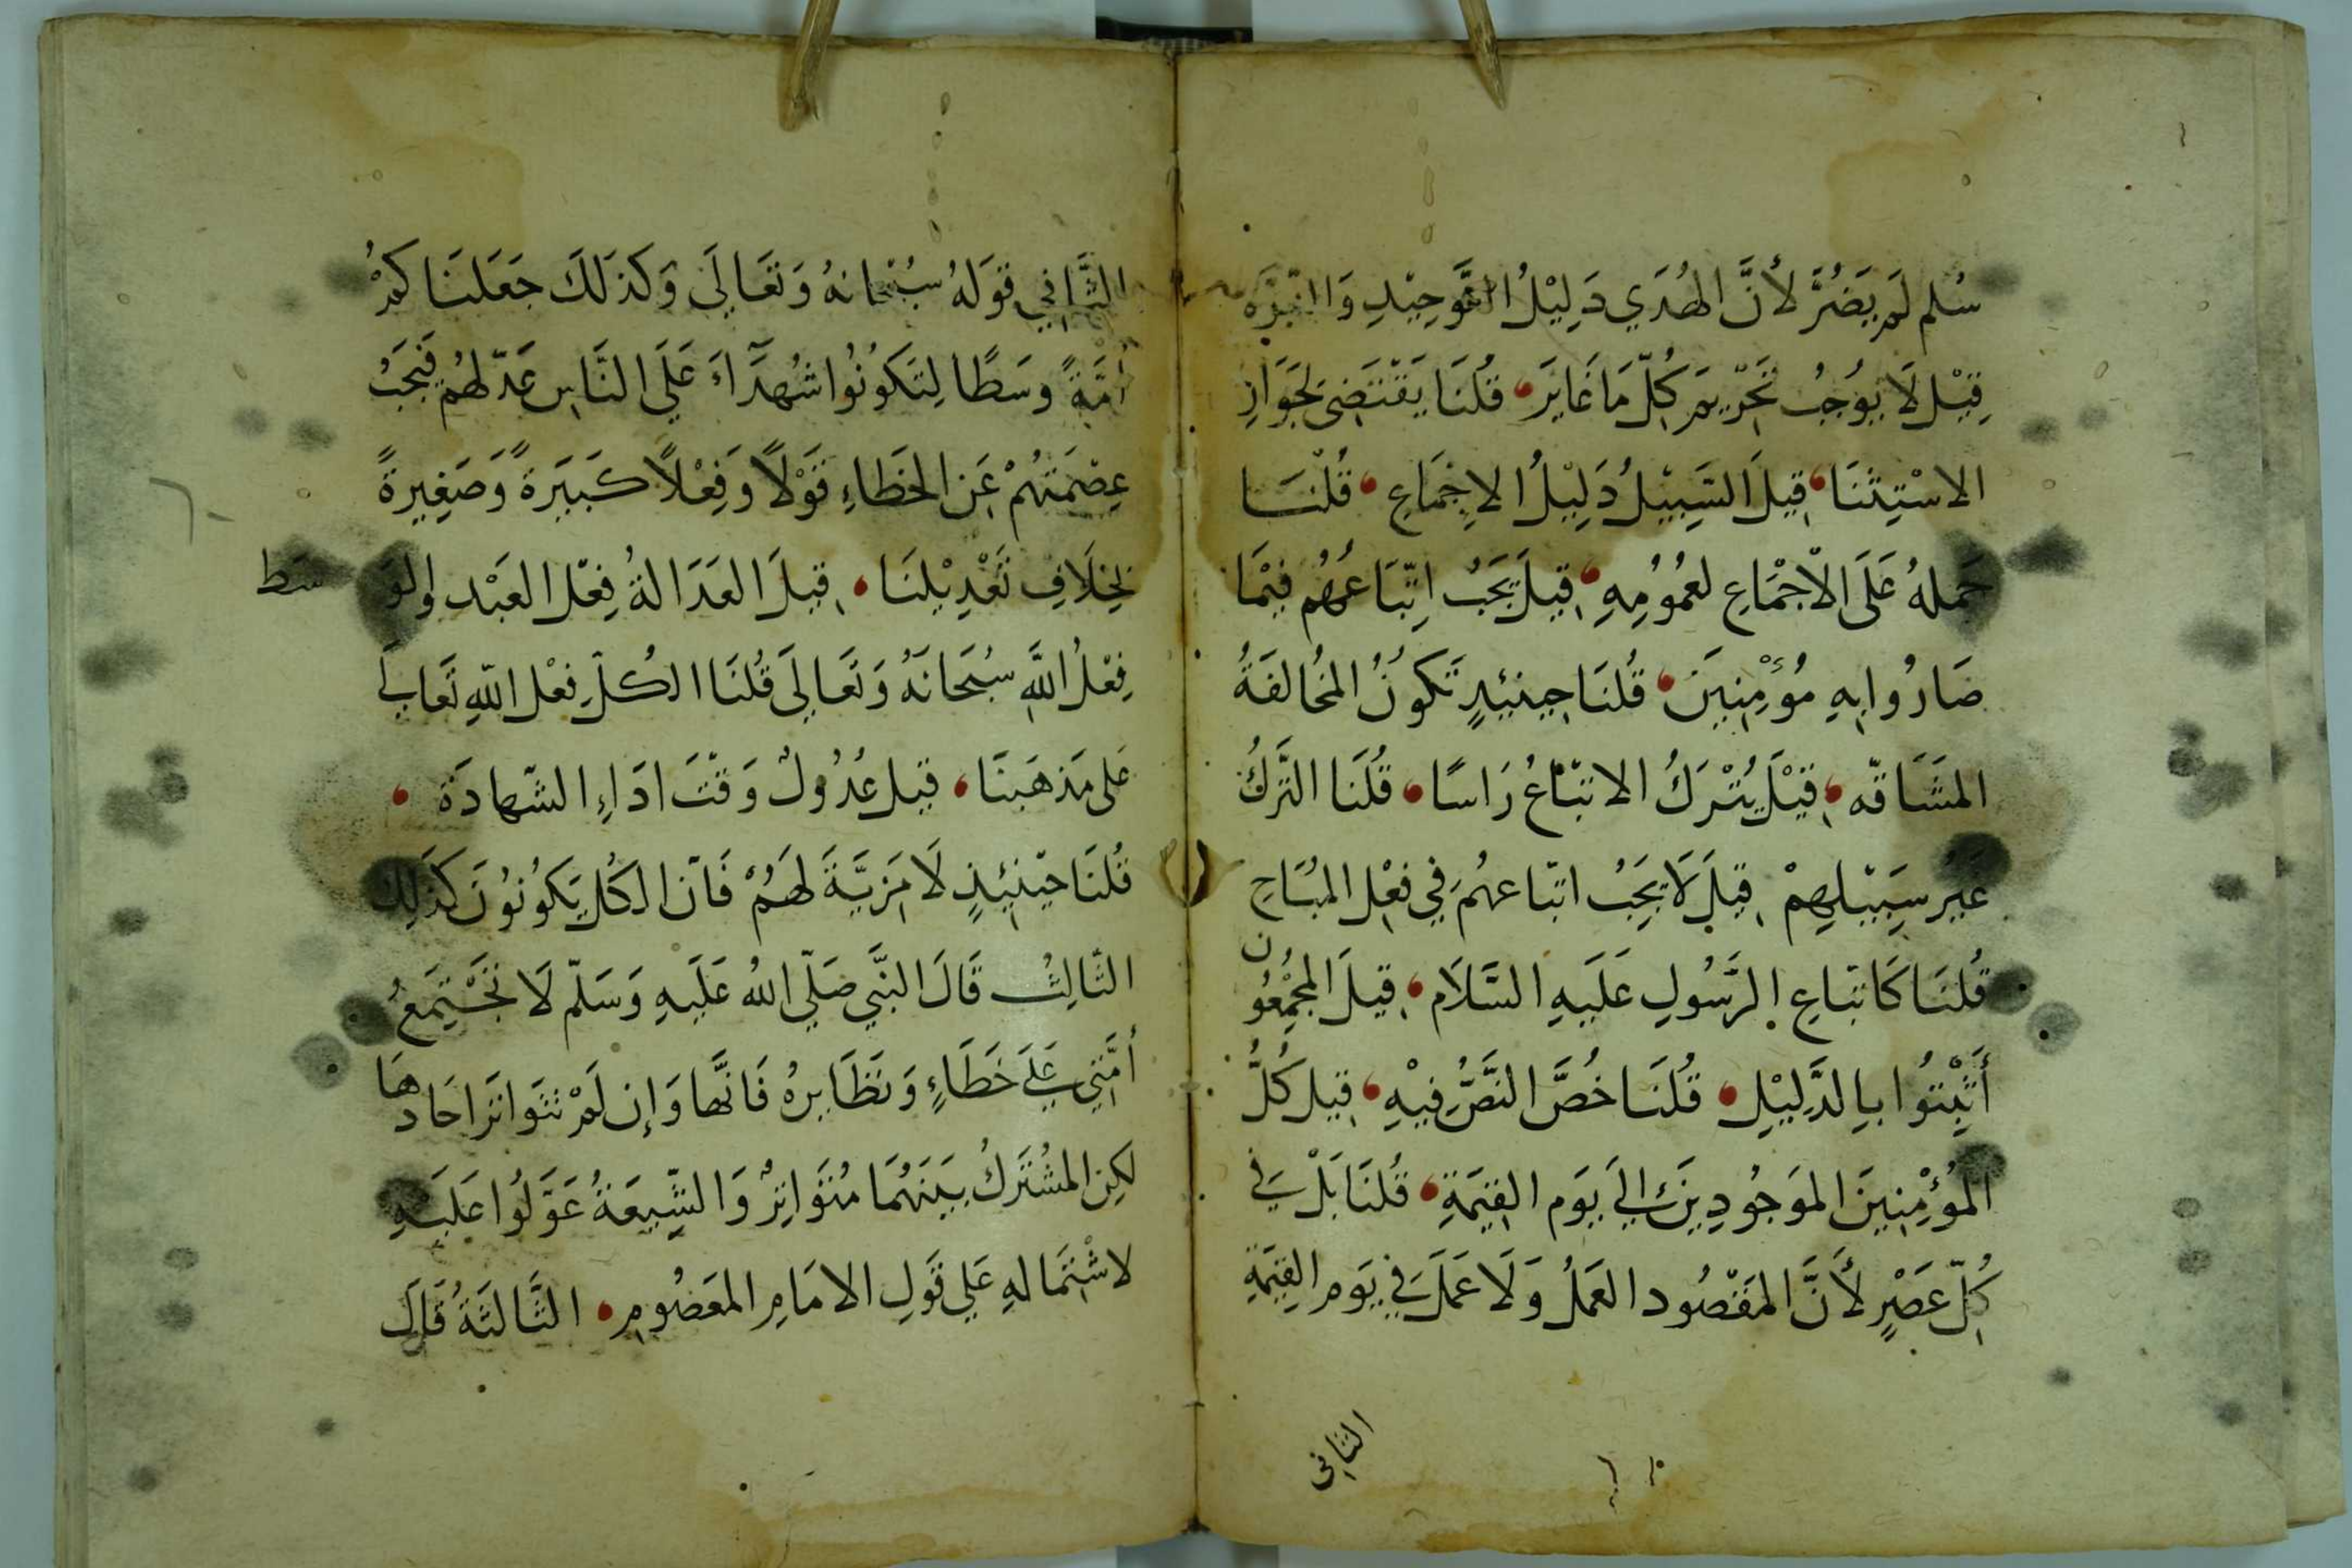 سُلم لَم يَضُرَّ لأنَّ الهُدَي دَلِيْلُ التَّوحِيْدِ وَالنّبوَّه
قِيْل لَا يوُجبُ تَحْرِيم كلّ مَا غَايَرَ قُلنَا يَقتَضِى لجَوَازِ
الاسْتِثنَا قِيلَ السَّبِيْلُ دَلِيْلُ الاجْمَاعِ قُلْنَا
حَملهُ عَلَى الاجْمَاعِ لعُمُومِهِ قِيلَ يَجَبُ اتِّبَاعَهُم فيْمَا
صَارُوا بِهِ مُؤْمِنِينَ قُلنَا حِينَئِذٍ تَكوُنُ المخُالفَةُ
المشَاقّه قِيْلَ يُتْرَكُ الاتبّاعُ رَاسًا قُلنَا التَّركُ
غَيرُ سَبِيْلِهِمْ قِيلَ لَا يَجِبُ اتبّاعهُم في فعْلِ المبُاحِ
قُلنَا كَاتبّاعِ الرَّسُولِ عَلَيهِ السَّلَام قِيلَ المجْمِعُون
أَثبِتُوا بِالدَّلِيْلِ قُلنَا خُصَّ النَّصُّ فِيْهِ قِيل كُلُّ
المُؤْمِنِينَ الموَجُودِينَ الَي يوَم القِيمَةِ قُلنَا بَلْ فِي
كُلّ عَصْرٍ لأَنَّ المَقْصُود العَملُ وَلَا عَمَلَ فِي يَوم القِيَمَةِ
الثاني
الثَّاني قوَلهُ سُبْحَانهُ وَتعَالَى وَكَذلكَ جَعَلنَاكمْ
أُمَّةً وسَطًا لِتَكوُنُوا شُهَدَآءَ عَلَي النَّاسِ عَدّلهُم فَيَجبُ
عِصْمَتهُمْ عَنِ الخَطَاءِ قوَْلاً وَفِعْلاً كَبيَرةً وَصَغِيرةً
بخِلَافِ تَعْدِيْلنَا قيلَ العَدَالةُ فِعْل العَبْد والوَسَط
فِعْلُ اللَّهِ سُبحَانَهُ وَتَعَالَى قُلنَا الكُلّ فِعْل اللهِ تَعَالَى
عَلى مَذهَبنَا قيل عُدُولٌ وَقتَ ادَاءِ الشّهادَة
قُلنَا حيْنئِذٍ لَا مَزِيَّةَ لهَمُ فَاّن الكُل يَكوُنوُنَ كذَلِك
الثّالِث قَالَ النّبَي صَلّي اللهُ عَلَيهِ وَسَلّم لَا تَجْتَمِعُ
أمَّتِي عَلَى خَطَاءٍ وَنَظَايرهُ فَانَّها وَإن لَمْ تتوَاترَ احَادهَا
لكِن المشُتَركُ بَينَهُمَا مُتوَاتِرٌ وَالشّيعَةُ عَوَّلُوا عَلَيهِ
لاشْتِمَالهِ عَلي قوَلِ الامَامِ المعَصُومِ الثَّالثَةُ قَال